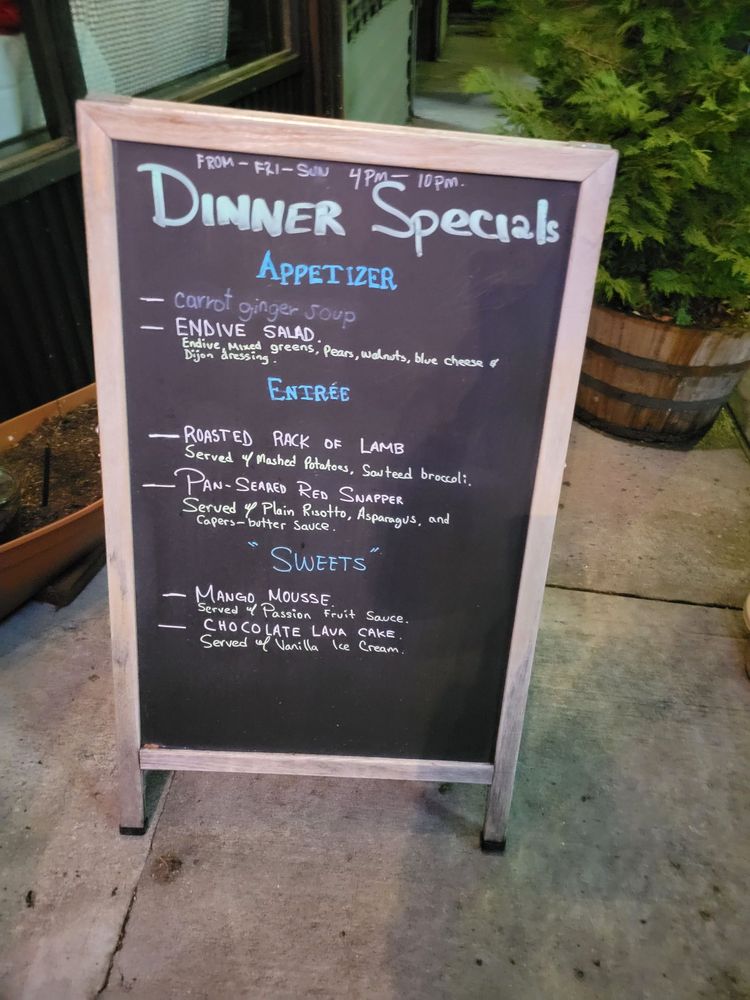 FROM - FRI - SUN 4PM - 10PM.
DINNER Specials
APPETIZER
- carrot ginger soup
- ENDIVE SALAD.
Endive, Mixed greens, Pears, walnuts, blue cheese &
Dijon dressing.
ENTRÉE
- ROASTED RACK OF LAMB
Served w/ Mashed Potatoes, Sauteed broccoli.
- PAN-SEARED RED SNAPPER
Served w/ Plain Risotto, Asparagus, and
Capers-butter sauce.
"SWEETS"
- MANGO MOUSSE.
Served w/ Passion Fruit Sauce.
- CHOCOLATE LAVA CAKE.
Served w/ Vanilla Ice Cream.